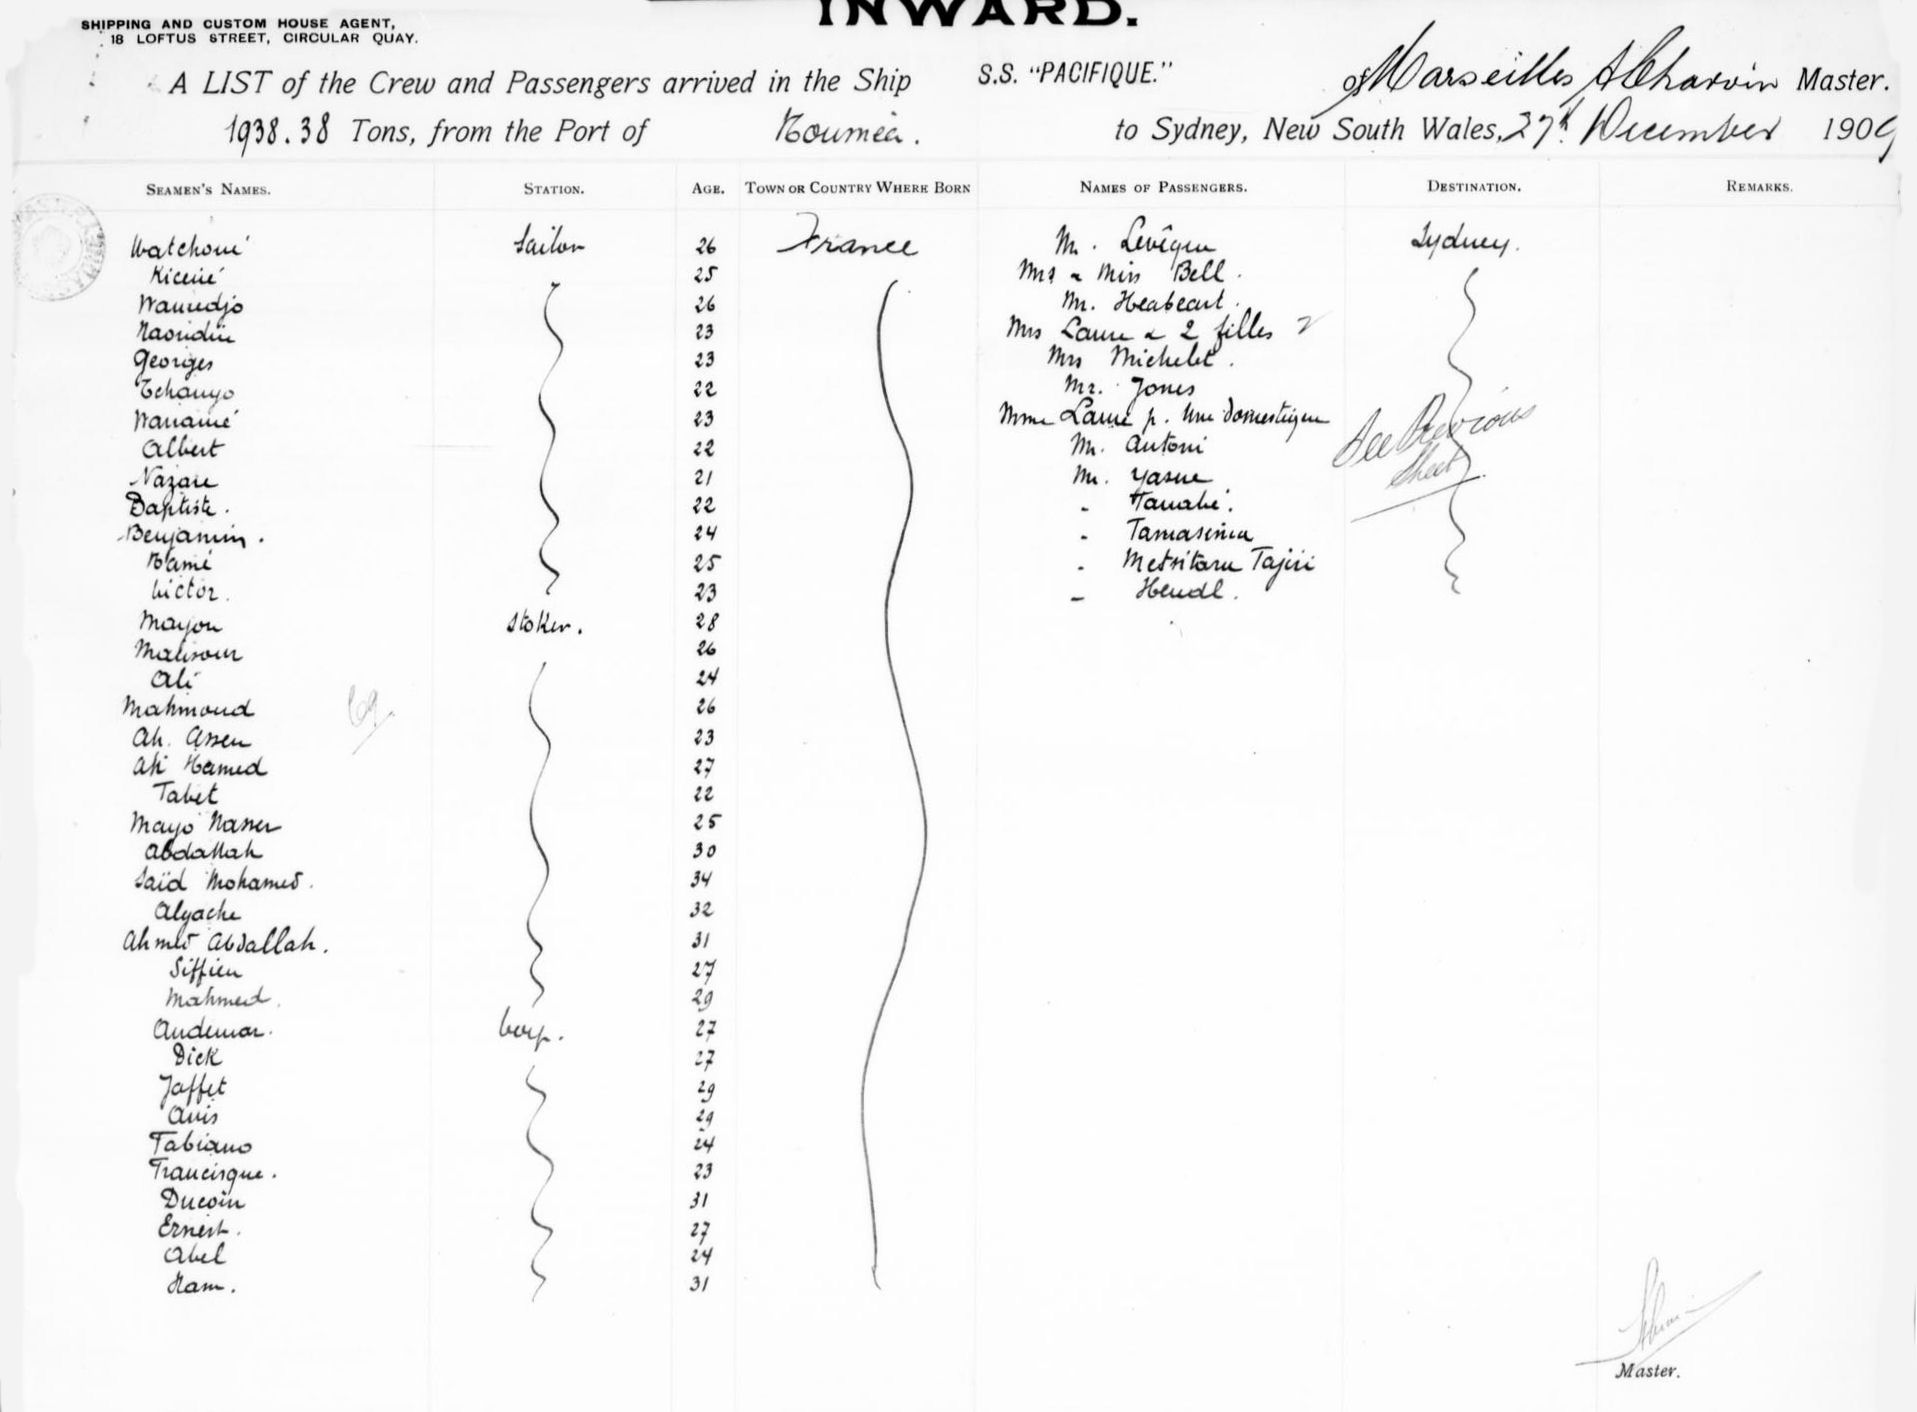 INWARD.
SHIPPING AND CUSTOM HOUSE AGENT,
18 LOFTUS STREET, CIRCULAR QUAY.
A LIST of the Crew and Passengers arrived in the Ship S.S. "PACIFIQUE." of Marseilles A Charvin Master.
1938.38 Tons, from the Port of Nouméa. to Sydney, New South Wales, 27th December 1909
SEAMEN'S NAMES. STATION. AGE. TOWN OR COUNTRY WHERE BORN NAMES OF PASSENGERS. DESTINATION. REMARKS.
Watchoué Sailor 26 France M. Levêque Sydney.
Kiceué 25 Mrs & Miss Bell.
Wamedjo 26 Mr.
23 Mrs Laure & 2 filles
Georges 23 Mrs Michelet.
Tchauyo 22 Mr. Jones
Wanamé 23 Mme Laure p. Une domestique
Albert 22 Mr. Antoni See Previous
Nazare 21 Mr. Yasue Sheet
Baptiste. 22 - Tanabé.
Benjamin. 24 -
25 - Metsitaru Tajiri
Victor. 23 - Hendl.
Mayou Stoker. 28
Mansour 26
Ali 24
Mahmoud 69. 26
Ah. Assen 23
Ali Hamed 27
Tabet 22
Mayo Nasser 25
Abdallah 30
Saïd Mohamed. 34
Alyache 32
Ahmed Abdallah. 31
Siffien 27
Mahmed. 29
Andemar. boys. 27
Dick 27
Jaffet 29
Anis 29
Fabiano 24
Francisque. 23
Ducoin 31
Ernest. 27
Abel 24
Nam. 31
Master.